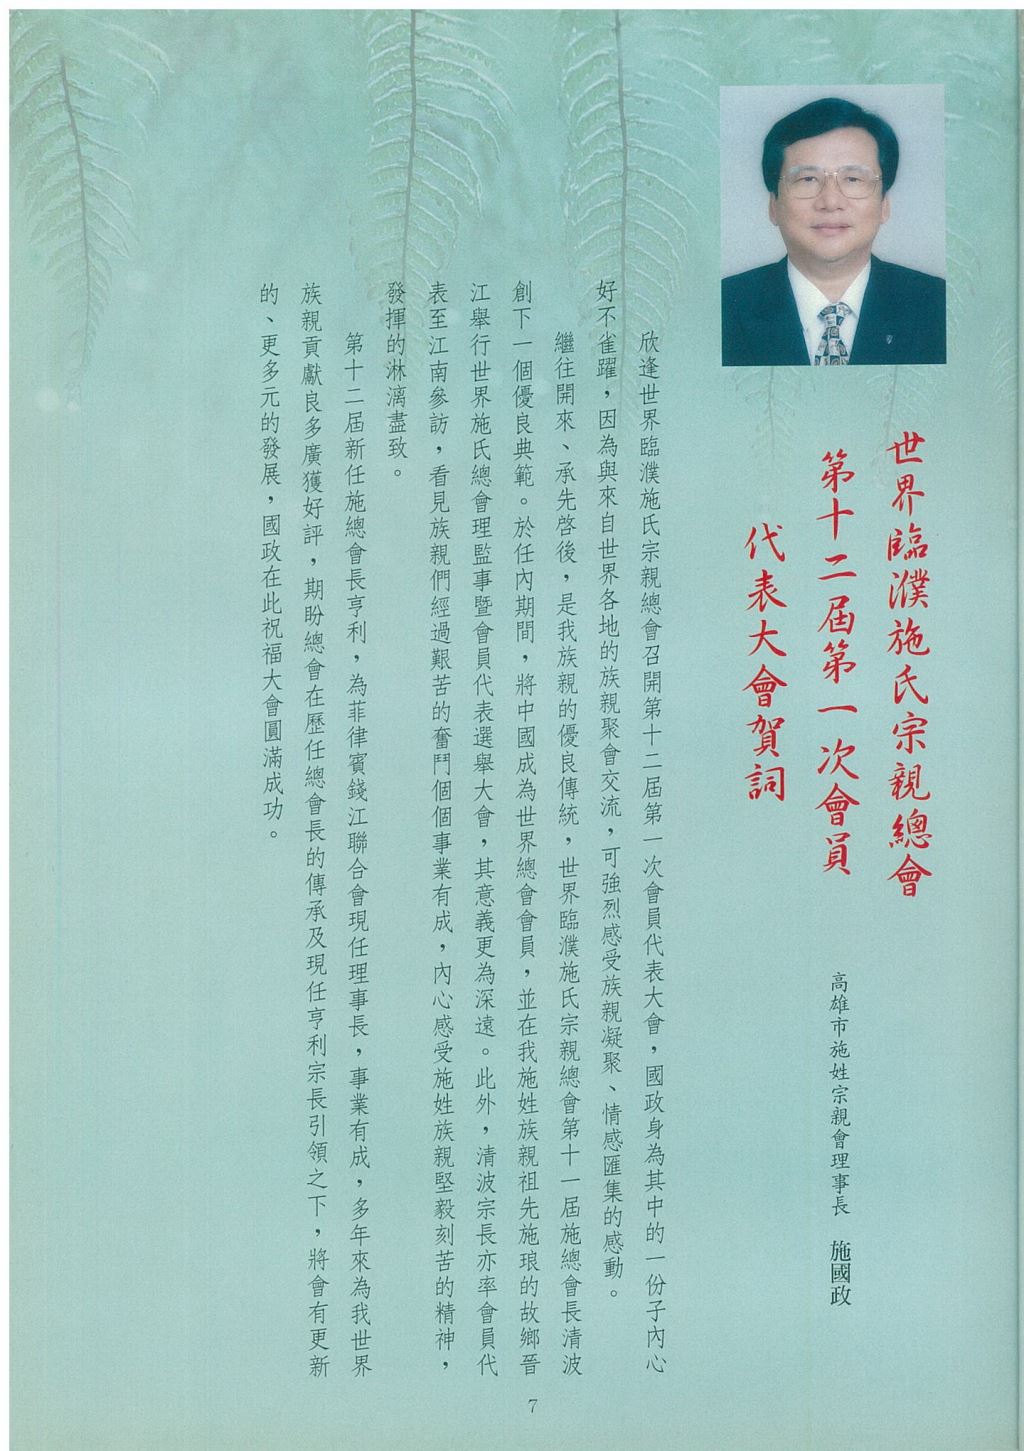 世界臨濮施氏宗親總會
第十二屆第一次會員
代表大會賀詞
高雄市施姓宗親會理事長　施國政
欣逢世界臨濮施氏宗親總會召開第十二屆第一次會員代表大會，國政身為其中的一份子內心
好不雀躍，因為與來自世界各地的族親聚會交流，可強烈感受族親凝聚、情感匯集的感動。
繼往開來、承先啓後，是我族親的優良傳統，世界臨濮施氏宗親總會第十一屆施總會長清波
創下一個優良典範。於任內期間，將中國成為世界總會會員，並在我施姓族親祖先施琅的故鄉晉
江舉行世界施氏總會理監事暨會員代表選舉大會，其意義更為深遠。此外，清波宗長亦率會員代
表至江南參訪，看見族親們經過艱苦的奮鬥個個事業有成，內心感受施姓族親堅毅刻苦的精神，
發揮的淋漓盡致。
第十二屆新任施總會長亨利，為菲律賓錢江聯合會現任理事長，事業有成，多年來為我世界
族親貢獻良多廣獲好評，期盼總會在歷任總會長的傳承及現任亨利宗長引領之下，將會有更新
的、更多元的發展，國政在此祝福大會圓滿成功。
7